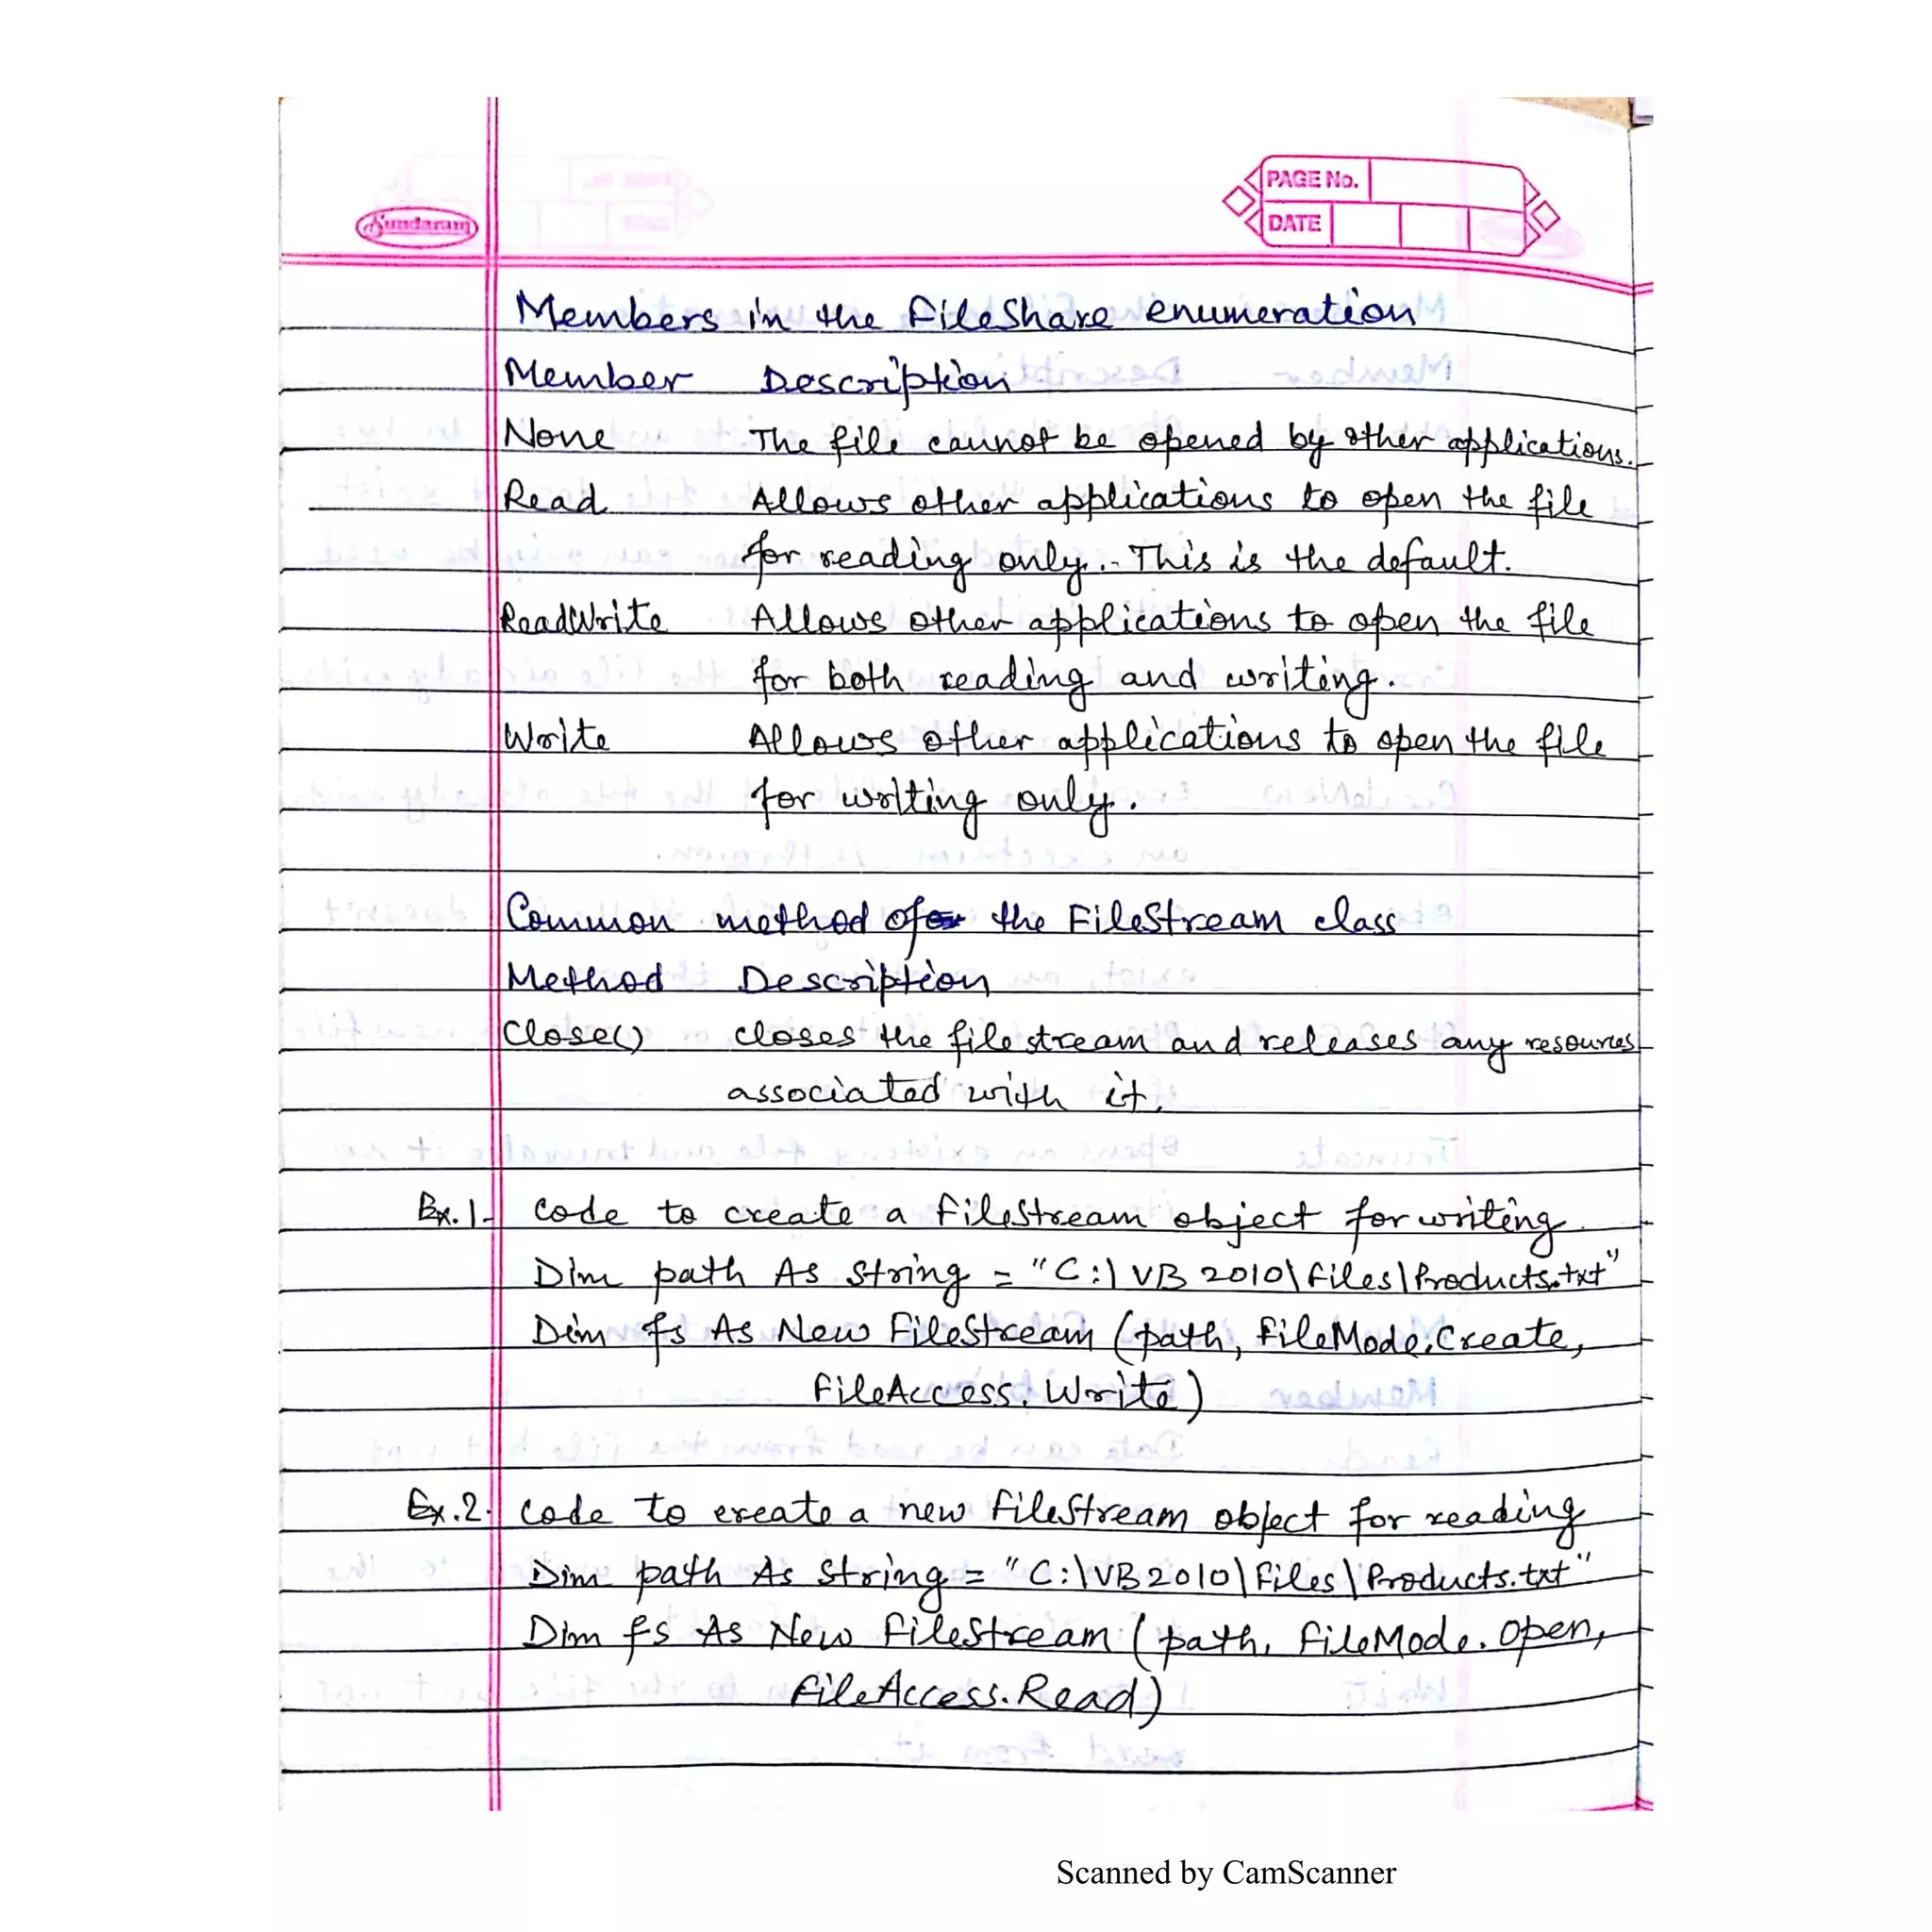 Sundaram
PAGE No.
DATE
Members in the FileShare enumeration
Member Description
None The file cannot be opened by other applications.
Read Allows other applications to open the file
for reading only. This is the default.
ReadWrite Allows other applications to open the file
for both reading and writing.
Write Allows other applications to open the file
for writing only.
Common method of the FileStream class
Method Description
Close() closes the file stream and releases any resources
associated with it.
Ex.1- code to create a FileStream object for writing
Dim path As String = "C:\VB 2010\Files\Products.txt"
Dim fs As New FileStream (path, FileMode.Create,
FileAccess.Write)
Ex.2. code to create a new FileStream object for reading
Dim path As String = "C:\VB2010\Files\Products.txt"
Dim fs As New FileStream (path, FileMode.Open,
FileAccess.Read)
Scanned by CamScanner